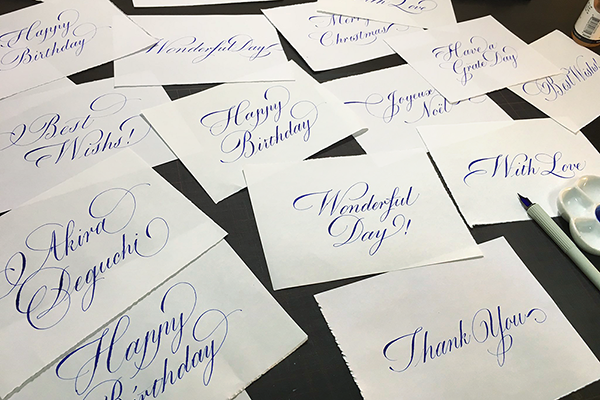 Happy
Birthday
Wonderful Day
Merry
Christmas!
With Love
Have a
Grate Day
Best Wishs!
Best
Wishs!
Happy
Birthday
Joyeux
Noël
With Love
Wonderful
Day!
Akira
Deguchi
Happy
Birthday
Thank You